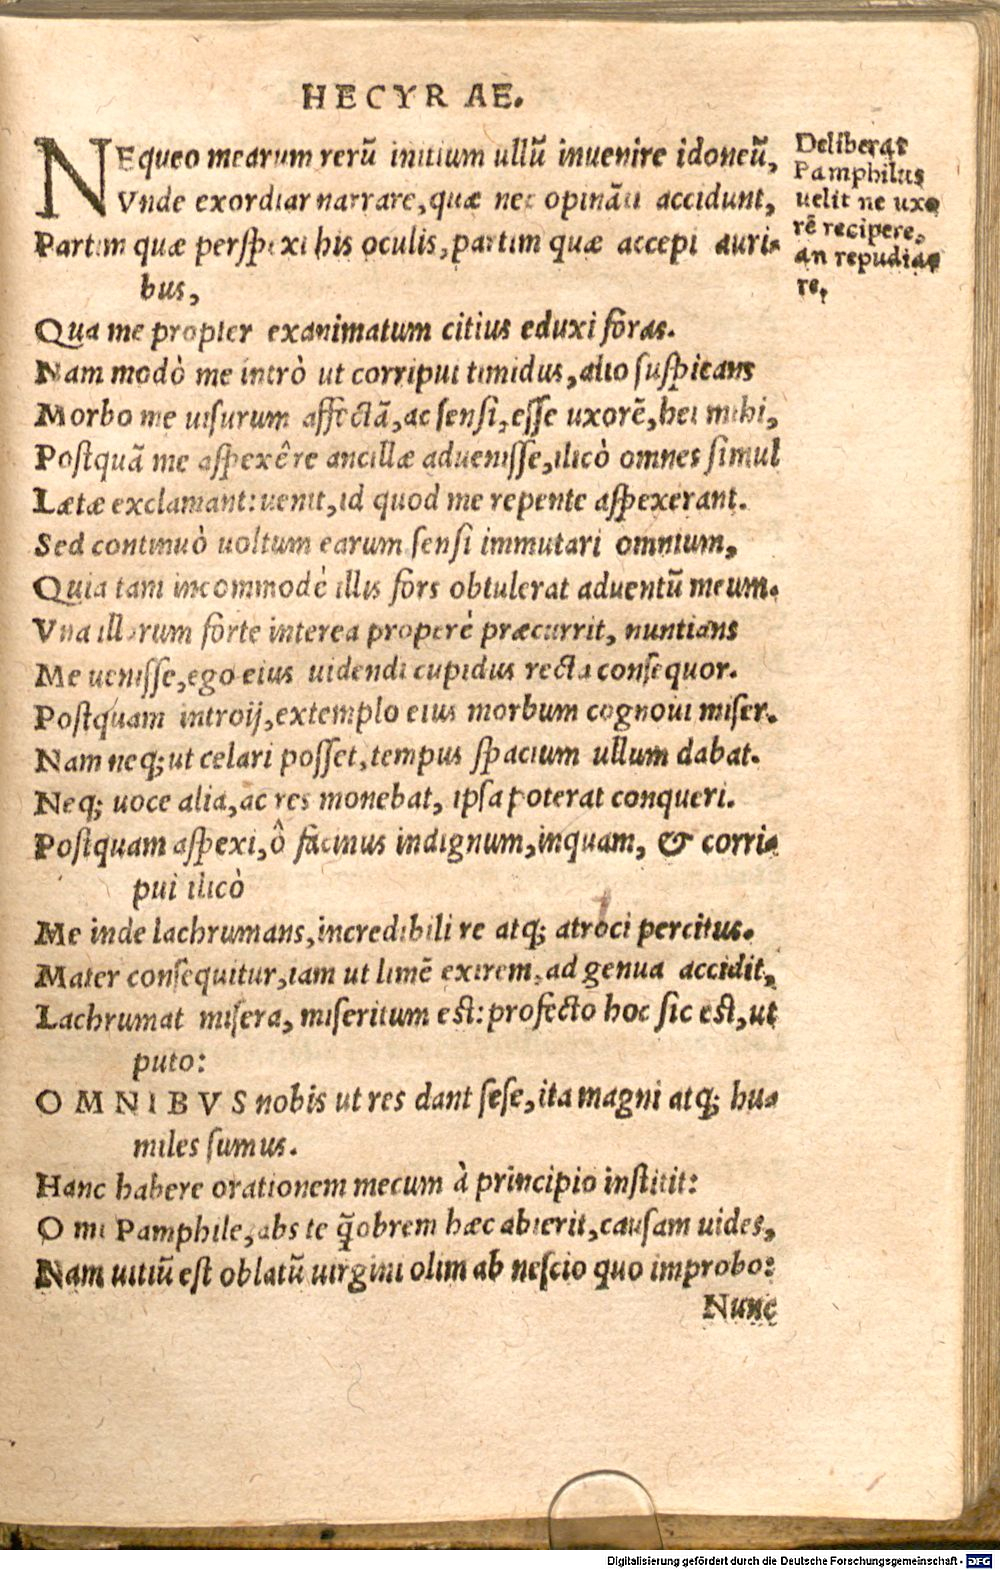 HECYR AE.
NEqueo mearum rerū initium ullū inuenire idoneū,
Vnde exordiar narrare, quæ nec opināti accidunt,
Partim quæ perspexi his oculis, partim quæ accepi auri-
bus,
Qua me propter exanimatum citius eduxi foras.
Nam modò me intrò ut corripui timidus, alio suspicans
Morbo me uisurum affectā, ac sensi, esse uxorē, hei mihi,
Postquā me aspexêre ancillæ aduenisse, ilicò omnes simul
Lætæ exclamant: uenit, id quod me repente aspexerant.
Sed continuò uoltum earum sensi immutari omnium,
Quia tam incommodè illis fors obtulerat aduentū meum.
Vna illarum forte interea properè præcurrit, nuntians
Me uenisse, ego eius uidendi cupidus recta consequor.
Postquam introij, extemplo eius morbum cognoui miser.
Nam neq; ut celari posset, tempus spacium ullum dabat.
Neq; uoce alia, ac res monebat, ipsa poterat conqueri.
Postquam aspexi, ô facinus indignum, inquam, & corri-
pui ilicò
Me inde lachrumans, incredibili re atq; atroci percitus.
Mater consequitur, iam ut limē exirem, ad genua accidit,
Lachrumat misera, miseritum est: profecto hoc sic est, ut
puto:
OMNIBVS nobis ut res dant sese, ita magni atq; hu-
miles sumus.
Hanc habere orationem mecum à principio institit:
O mi Pamphile, abs te q̃obrem hæc abierit, causam uides,
Nam uitiū est oblatū uirgini olim ab nescio quo improbo:
Nunc
Deliberat
Pamphilus
uelit ne uxo
rē recipere,
an repudia-
re.
Digitalisierung gefördert durch die Deutsche Forschungsgemeinschaft - DFG